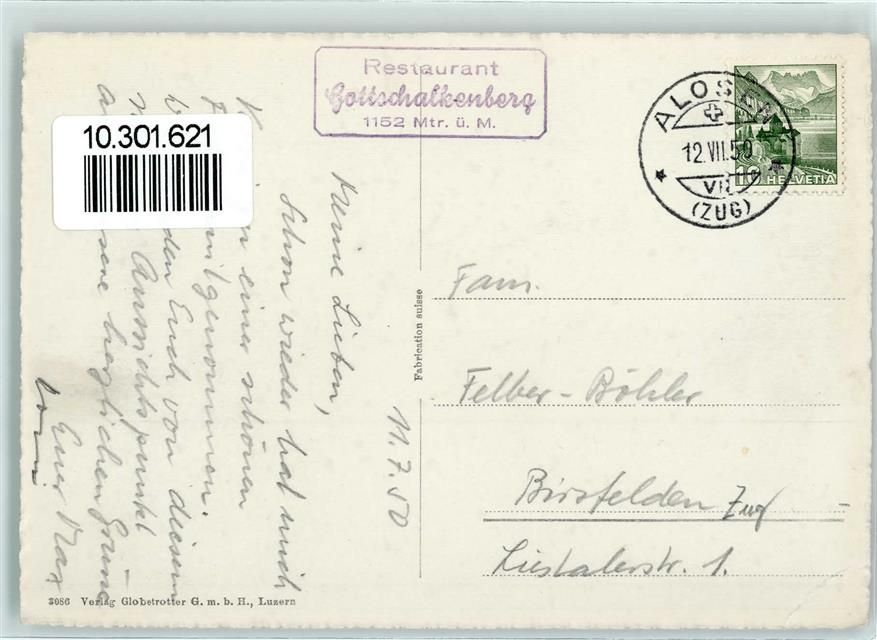 Restaurant
Gottschalkenberg
1152 Mtr. ü. M.
ALOSEN
12.VII.50
VII
(ZUG)
10 HELVETIA
10.301.621
11.7.50
Meine Lieben,
Schon wieder hat mich
einer schönen
mitgenommen.
den Euch von diesem
Aussichtspunkt
herzlichen Grüsse
Euer Max
Fabrication suisse
Fam.
Felber-Böhler
Birsfelden
Liestalerstr. 1.
3086 Verlag Globetrotter G. m. b. H., Luzern